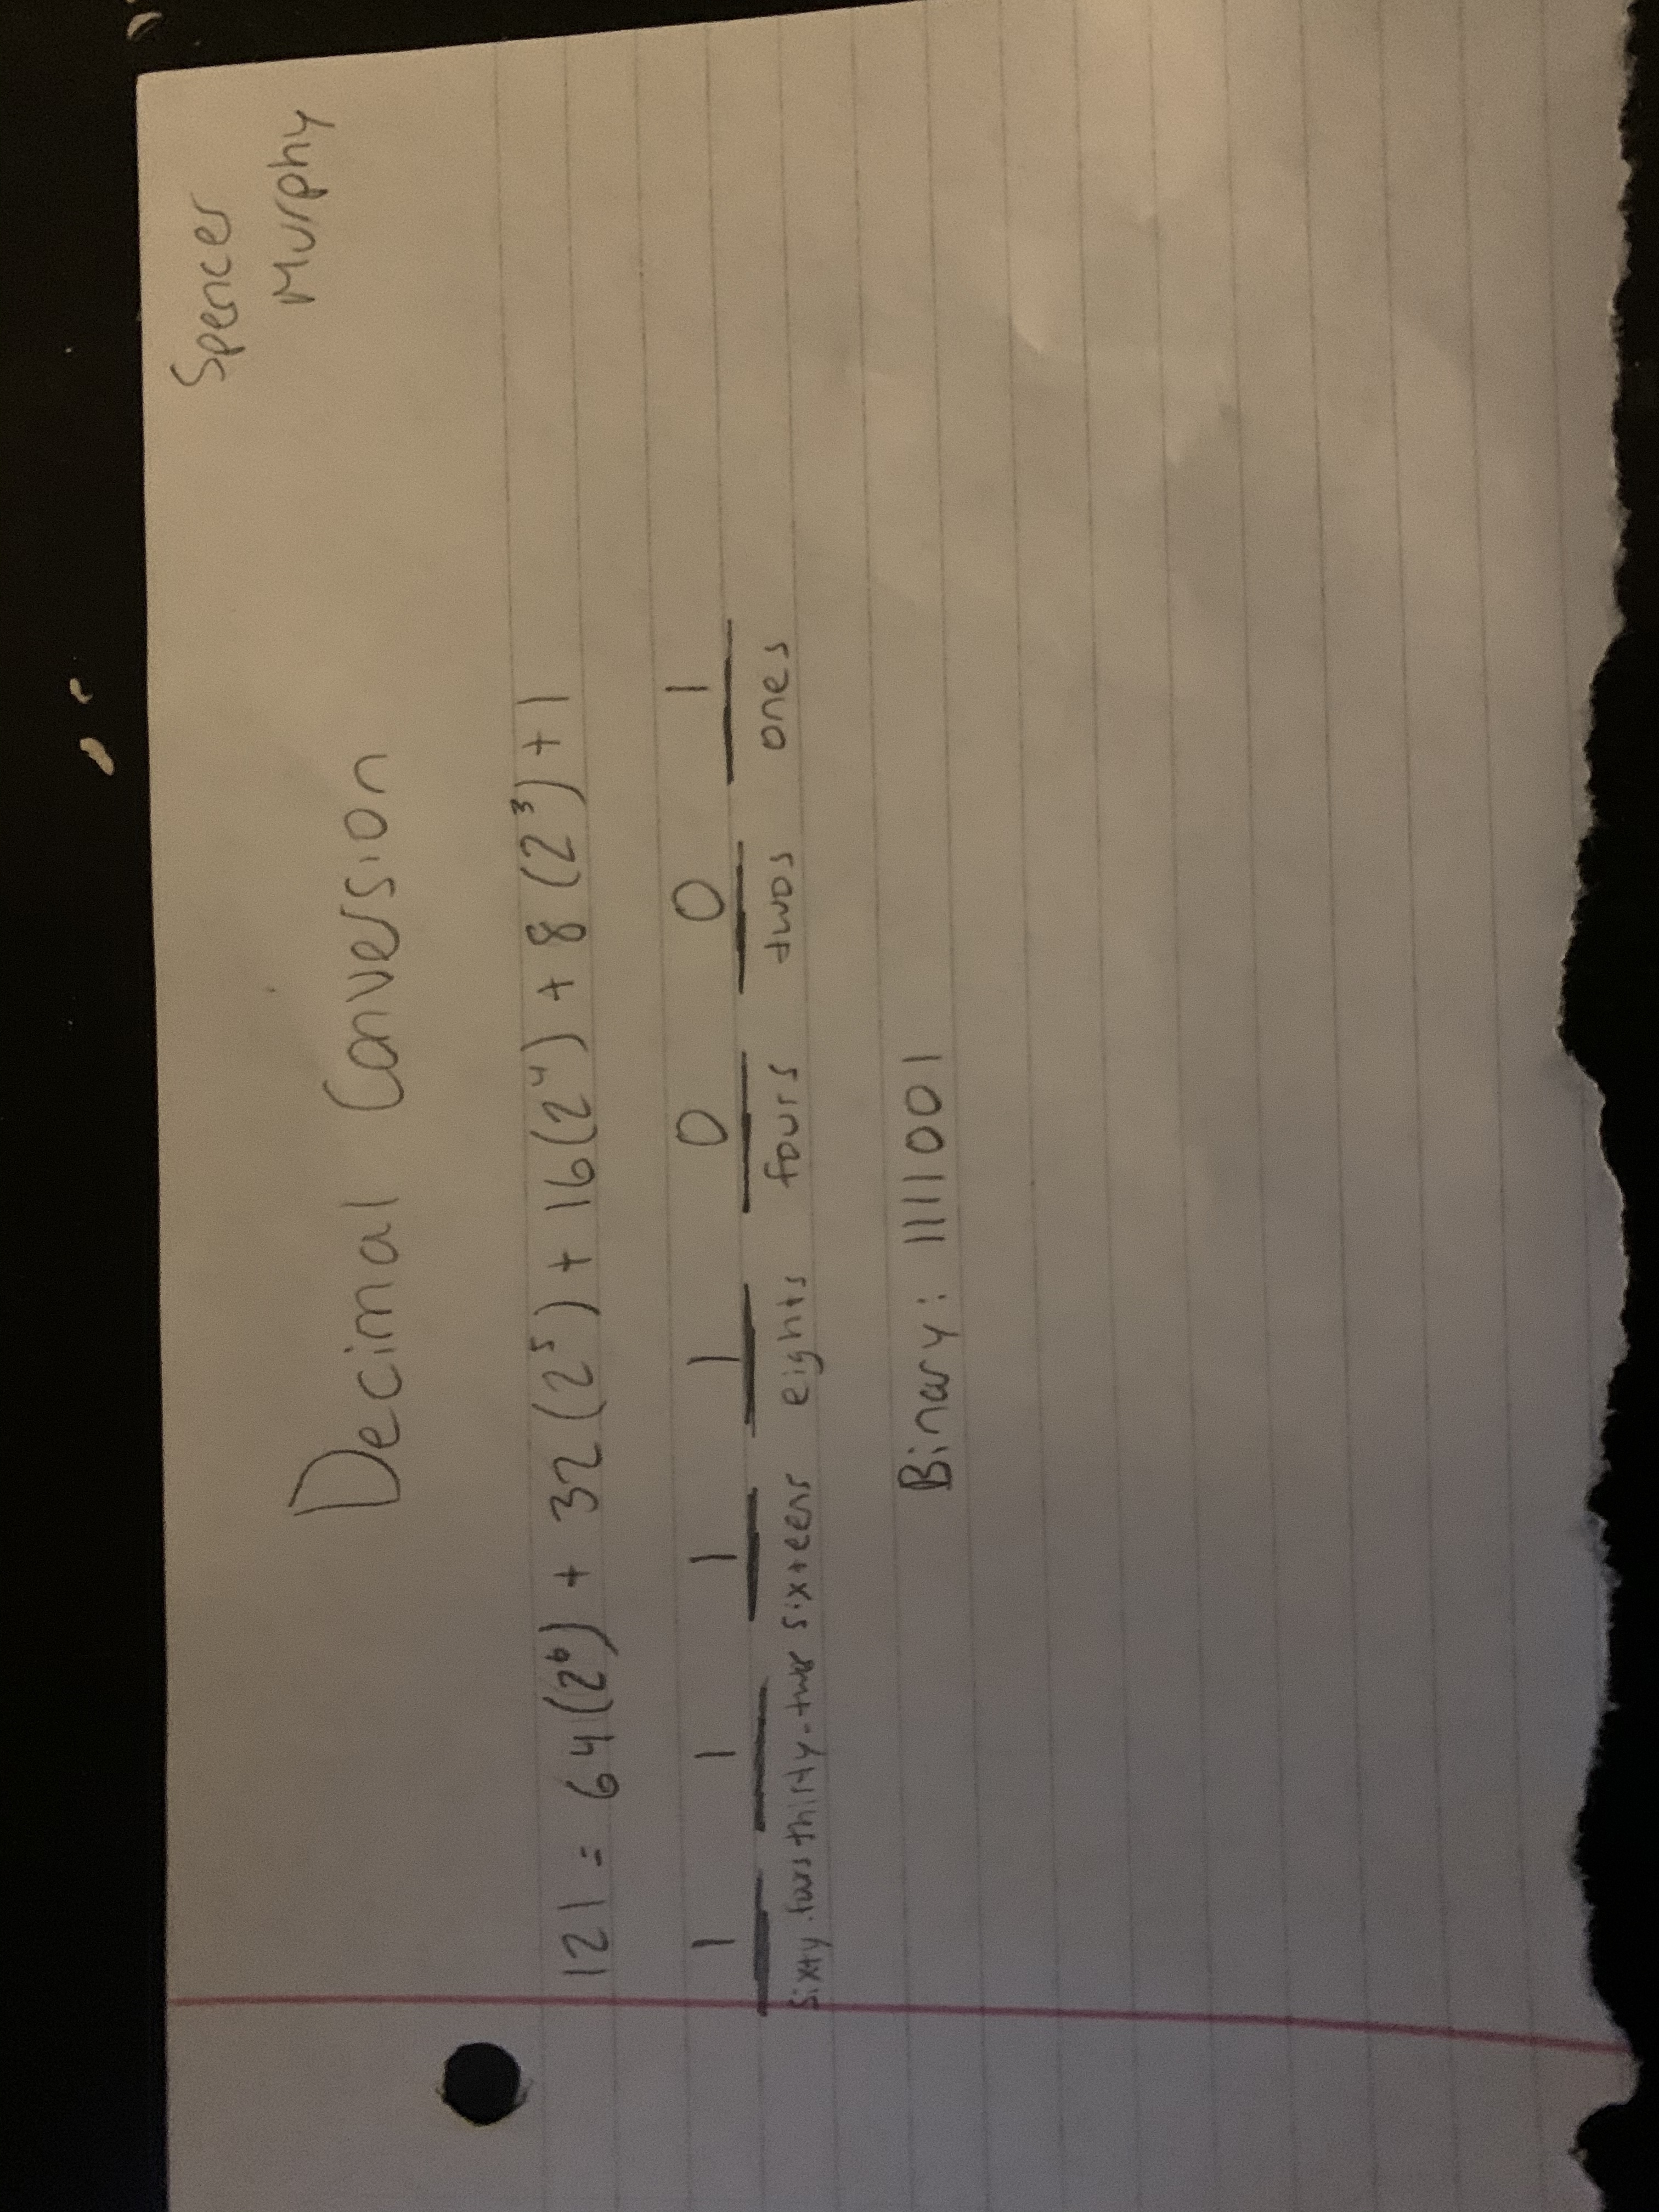 Spencer
Murphy
Decimal Conversion
121 = 64(2⁶) + 32(2⁵) + 16(2⁴) + 8(2³) + 1
1 1 1 1 0 0 1
sixty-fours thirty-twos sixteens eights fours twos ones
Binary: 1111001